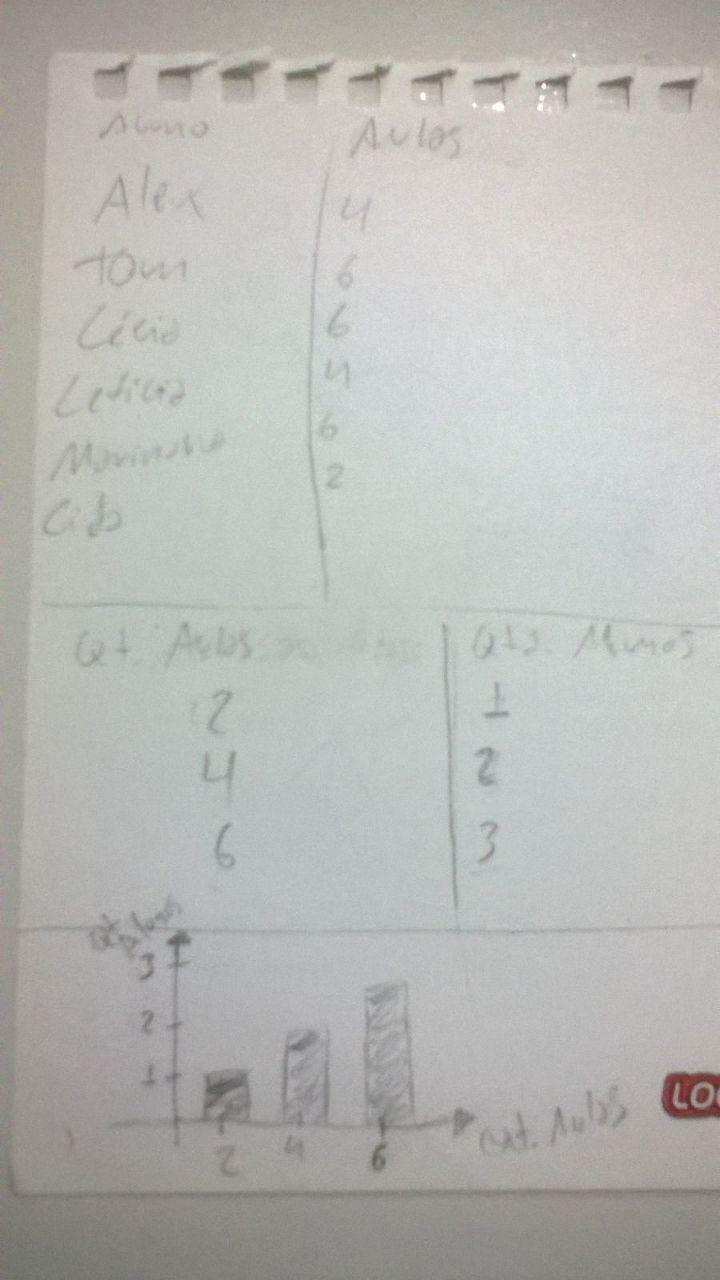 Aluno Aulas
Alex 4
Tom 6
Lécio 6
Leticia 4
6
Cida 2
Qt. Aulas Qtd. Alunos
2 1
4 2
6 3
Qt. Alunos
3
2
1
2 4 6
Qt. Aulas
LO